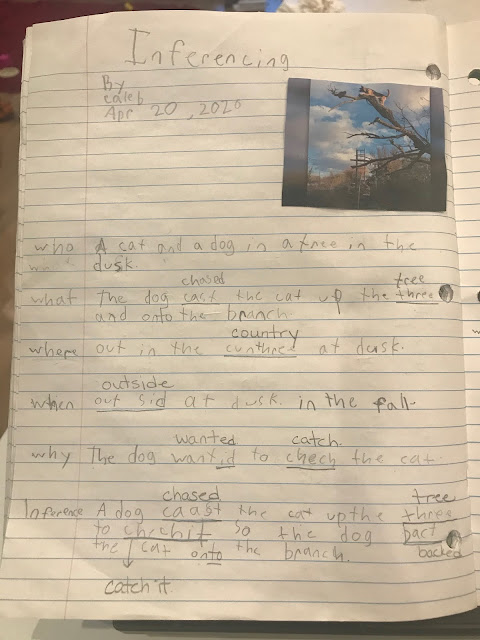 Inferencing
By
caleb
Apr 20, 2020
who A cat and a dog in a tree in the
dusk.
chased tree
what The dog cast the cat up the three
and onto the branch
country
where out in the cunthree at dusk.
outside
when out sid at dusk. in the fall.
wanted catch.
why The dog wantid to chech the cat.
chased tree
Inference A dog caast the cat up the three
to chechit so the dog bact
the cat onto the branch. backed
catch it.